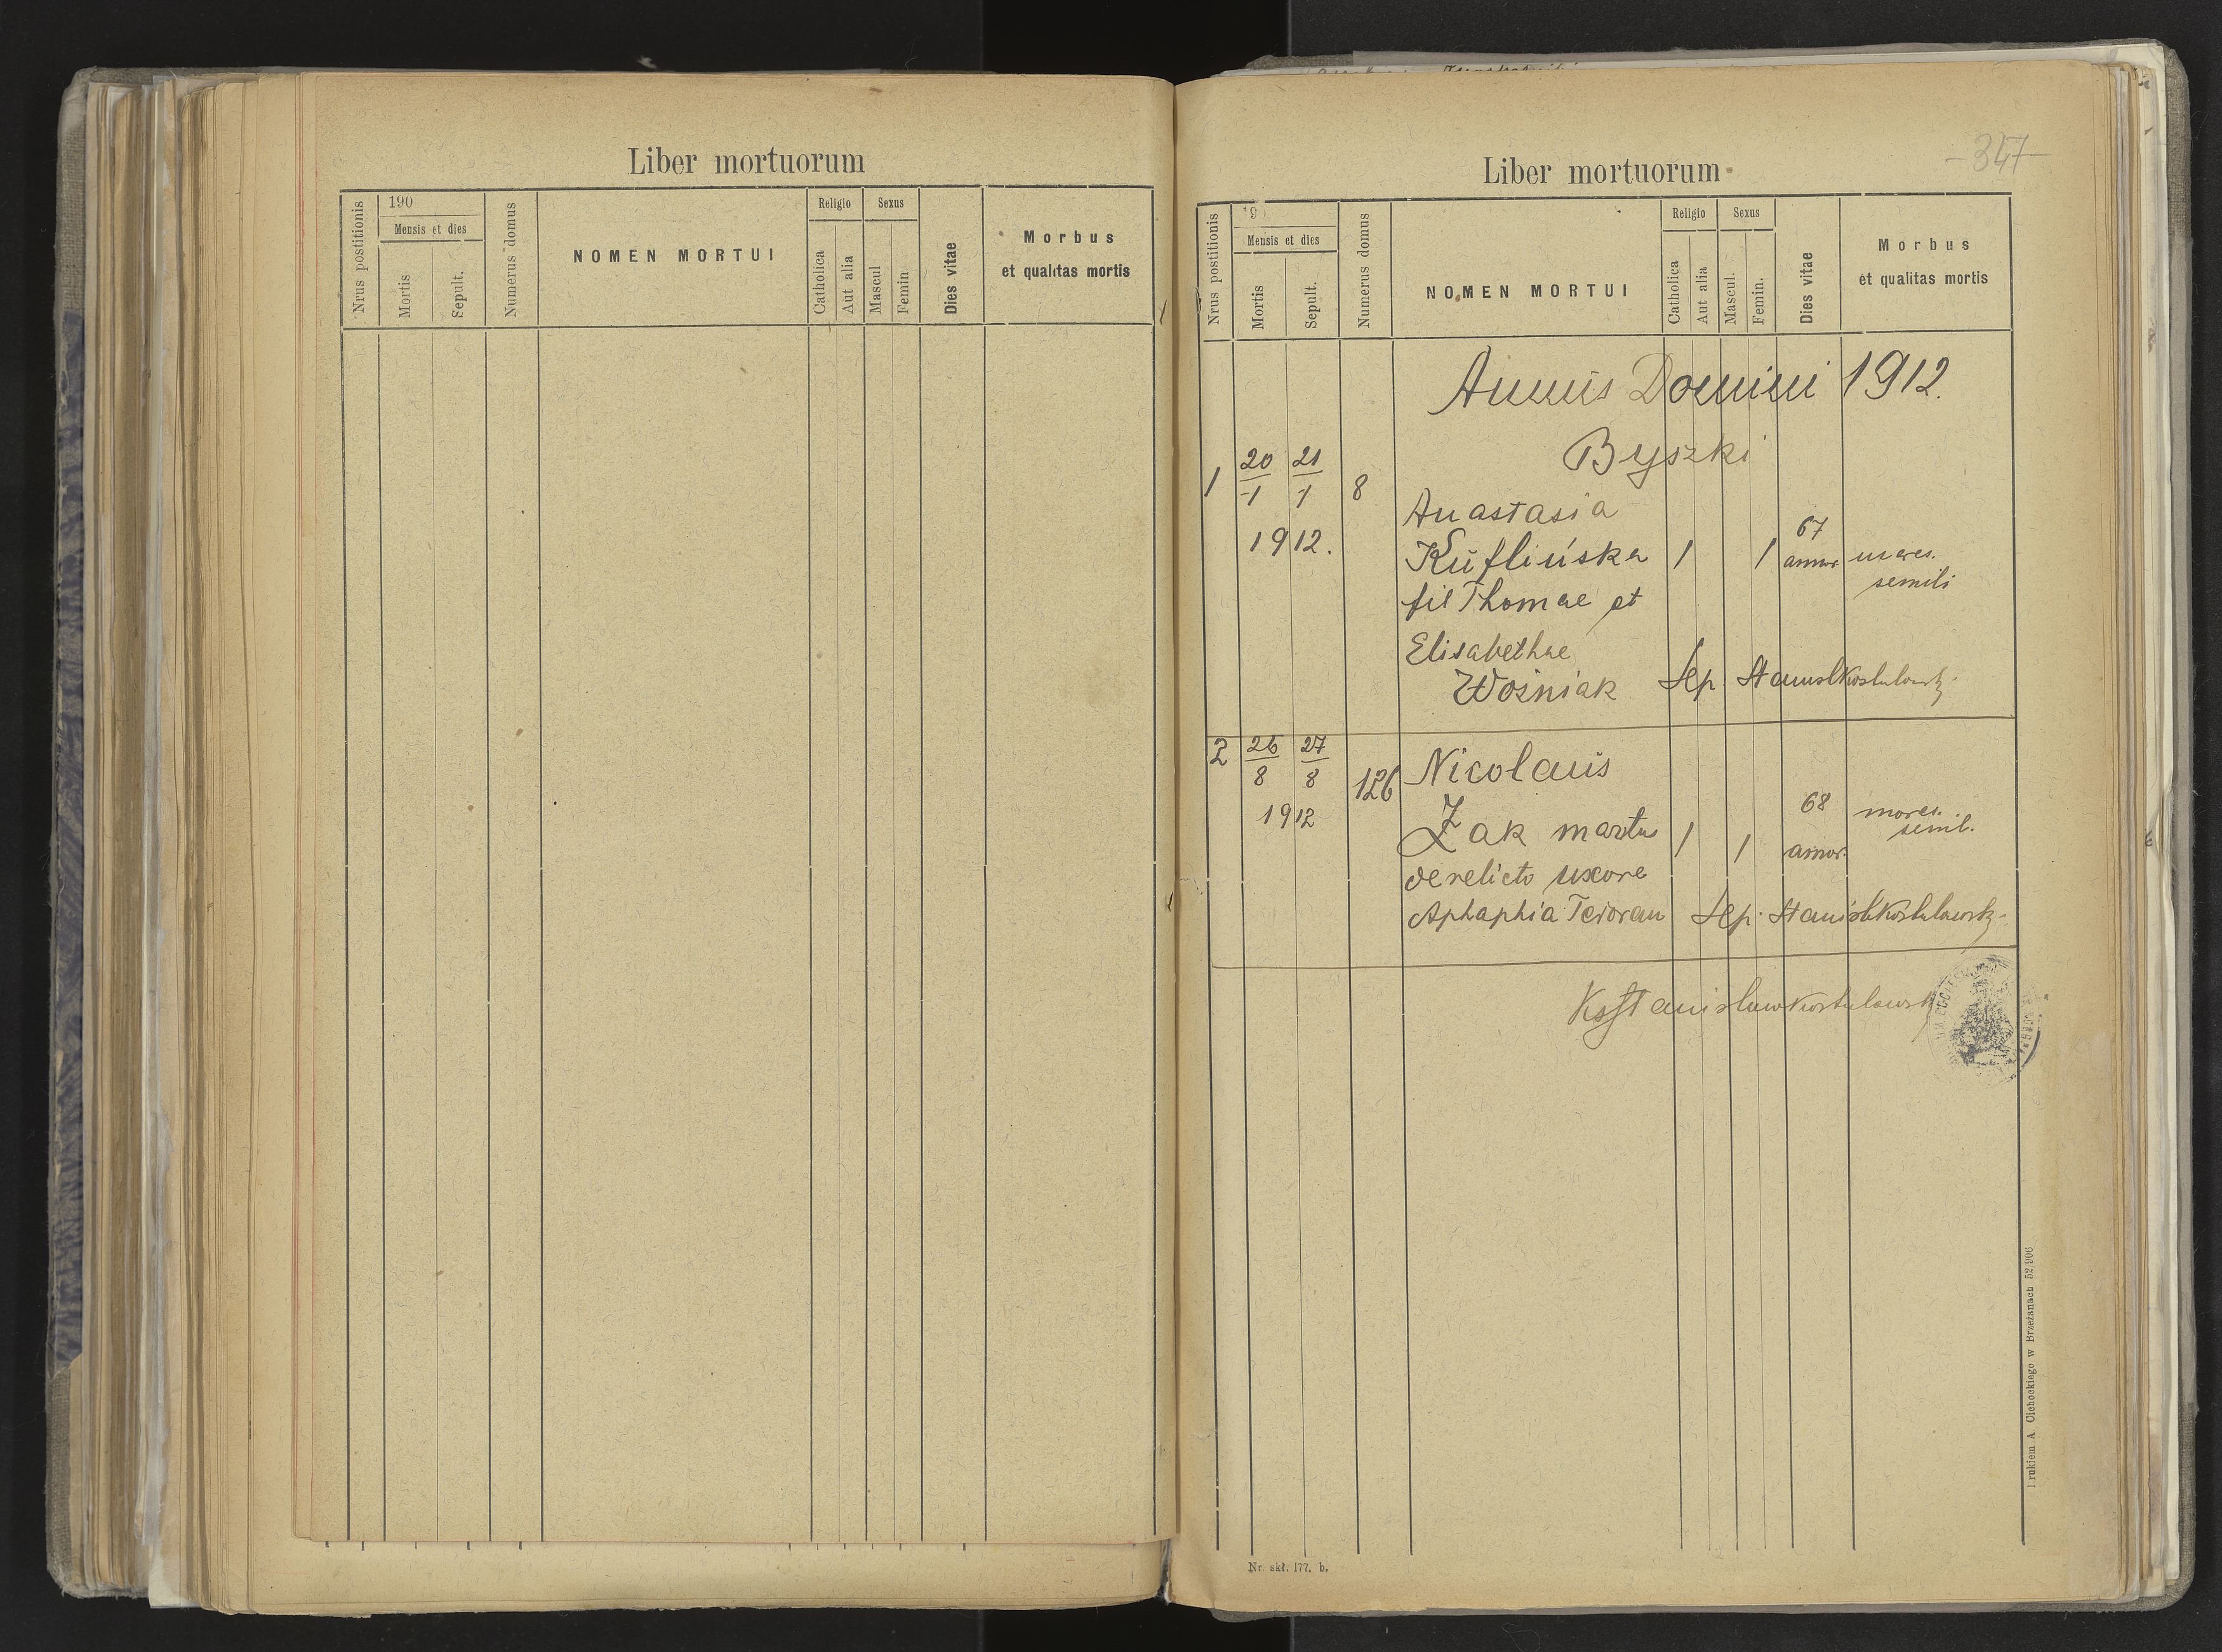 Liber mortuorum
Nrus postitionis
190
Mensis et dies
Mortis
Sepult.
Numerus domus
NOMEN MORTUI
Religio
Catholica
Aut alia
Sexus
Mascul
Femin
Dies vitae
Morbus
et qualitas mortis
- 347 -
Liber mortuorum
Nrus postitionis
Mensis et dies
Mortis
Sepult.
Numerus domus
NOMEN MORTUI
Religio
Catholica
Aut alia
Sexus
Mascul.
Femin.
Dies vitae
Morbus
et qualitas mortis
Annus Domini 1912.
Byszki
1 20/1 21/1 8
1912.
Anastasia
Kuflińska 1 1 67
fil Thomae et
Elisabethae
Woźniak Sep.
2 26/8 27/8 126 Nicolaus
1912
Żak 1 1 68
derelicto uxore
Aphaphia Sep.
Ks Stanisław
Drukiem A. Cichockiego w Brzeżanach 52,906
Nr. skł. 177. b.